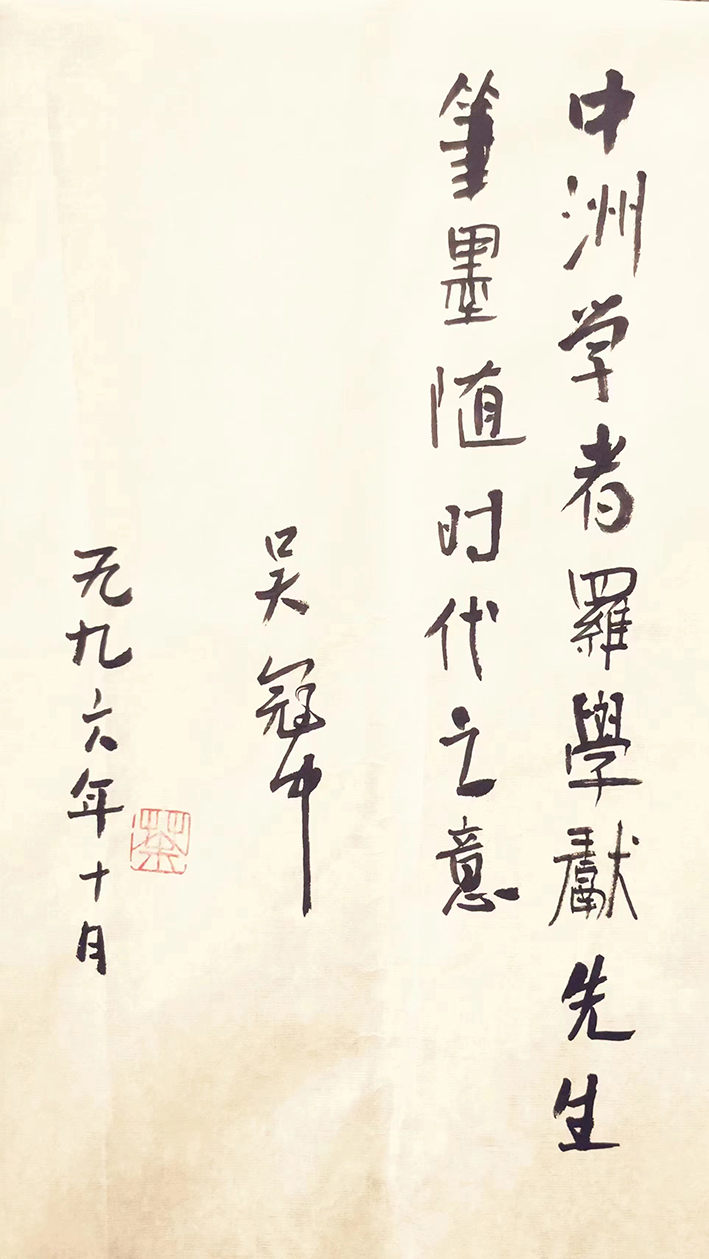 中洲学者羅學獻先生
筆墨随时代之意
吴冠中
一九九六年十月